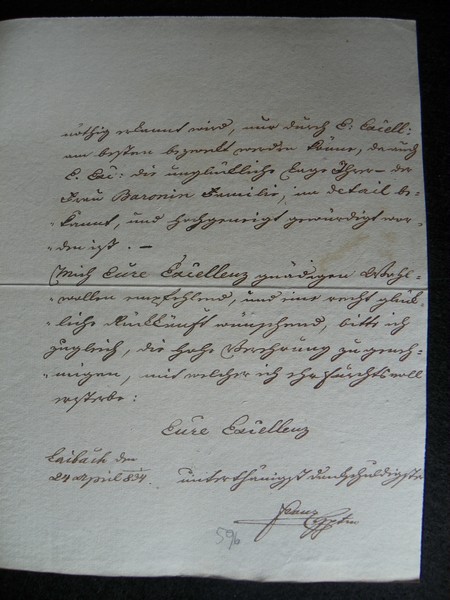 nöthig erkannt wird, nur durch E: Excell:
am besten bezweckt werden könne, da auch
E. Exc: die unglückliche Lage Ihrer – der
Frau Baronin Familie, im detail be-
kannt, und hochgeneigt gewürdigt wor-
den ist. –
Mich Eure Excellenz gnädigen Wohl-
wollen empfehlend, und eine recht glück-
liche Rückkunft wünschend, bitte ich
zugleich, die hohe Verehrung zu geneh-
migen, mit welcher ich ehrfurchtsvoll
ersterbe:
Eure Excellenz
Laibach den
24 April 834.
unterthänigst dankschuldigster
Franz
59/6